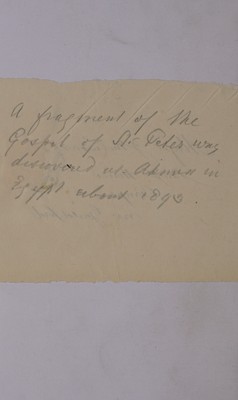 A fragment of the
Gospel of St. Peter was
discovered at in
Egypt about 1890.